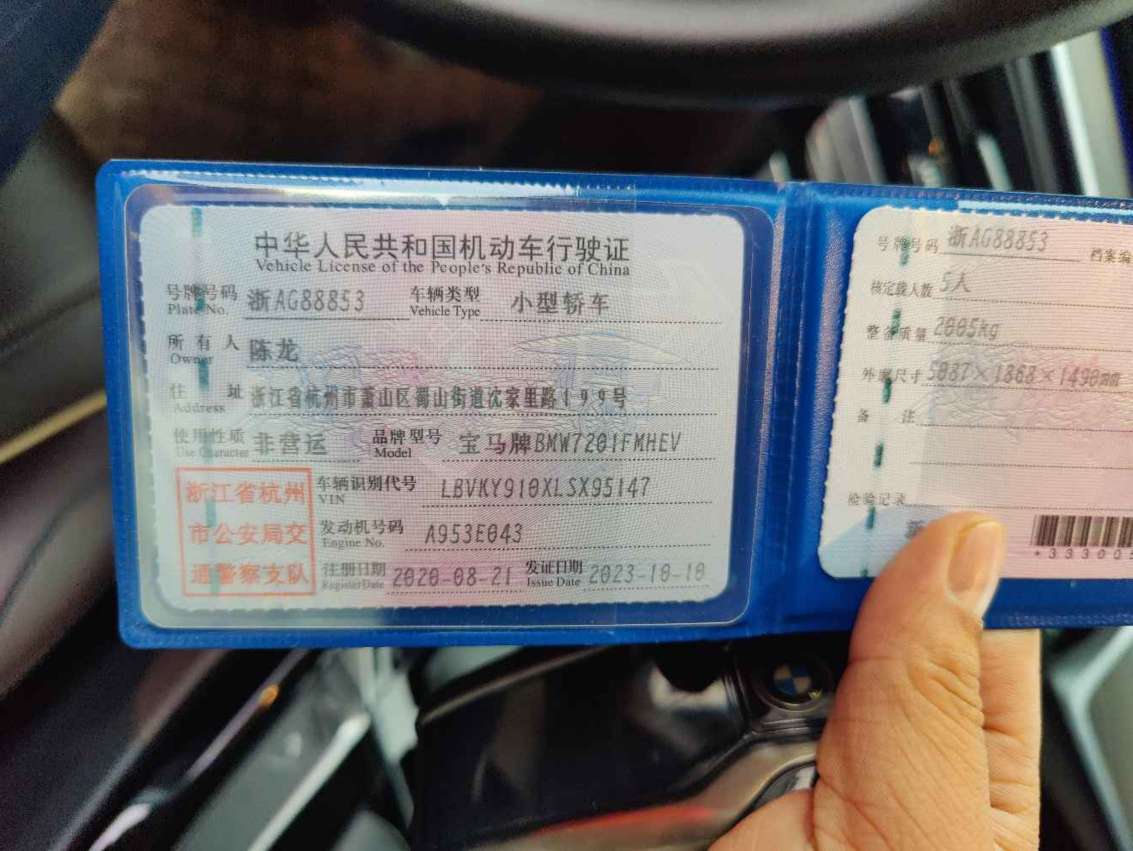 中华人民共和国机动车行驶证
Vehicle License of the People's Republic of China
号牌号码 浙AG88853 车辆类型 小型轿车
Plate No. Vehicle Type
所有人 陈龙
Owner
住址 浙江省杭州市萧山区蜀山街道沈家里路199号
Address
使用性质 非营运 品牌型号 宝马牌BMW7201FMHEV
Use Character Model
浙江省杭州
市公安局交
通警察支队
车辆识别代号 LBVKY910XLSX95147
VIN
发动机号码 A953E043
Engine No.
注册日期 2020-08-21 发证日期 2023-10-10
Register Date Issue Date
号牌号码 浙AG88853 档案编
核定载人数 5人
整备质量 2005kg
外廓尺寸 5087×1868×1490mm
备注
检验记录